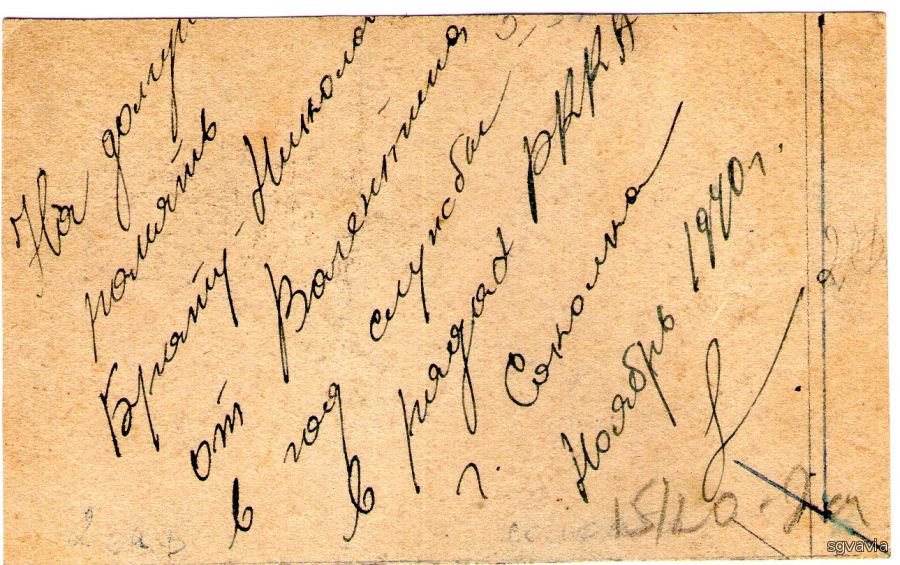 На долгую
память
Брату-Николаю
от Валентина
в год службы
в рядах РККА
г. Соколка
Ноябрь 1940 г.
sgvavia